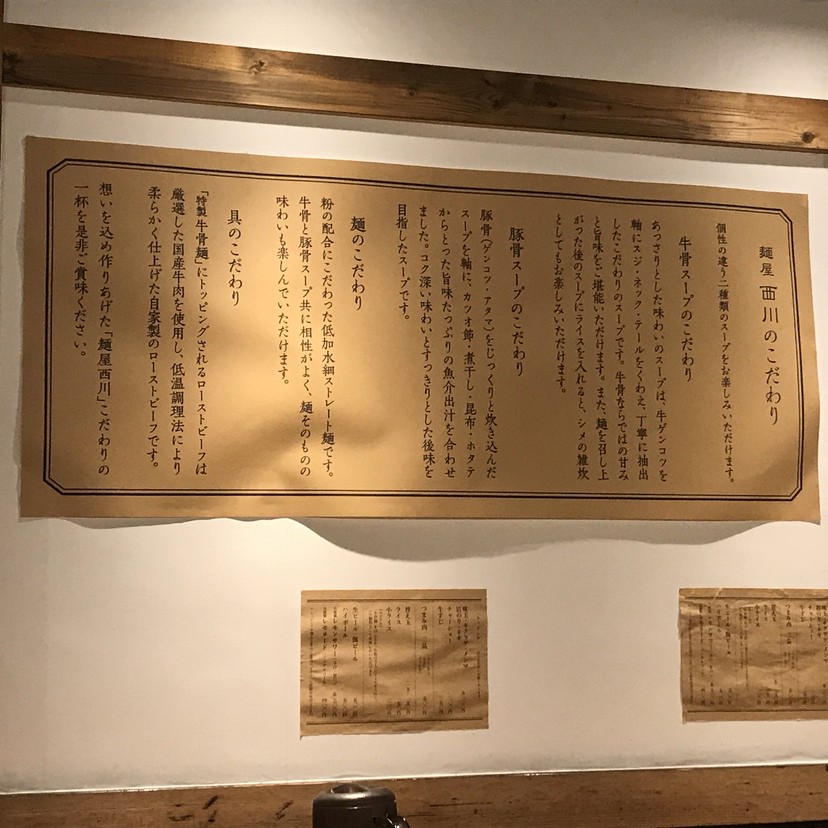 麺屋 西川のこだわり
個性の違う二種類のスープをお楽しみいただけます。
牛骨スープのこだわり
あっさりとした味わいのスープは、牛ゲンコツを
軸にスジ・ネック・テールをくわえ、丁寧に抽出
したこだわりのスープです。牛骨ならではの甘み
と旨味をご堪能いただけます。また、麺を召し上
がった後のスープにライスを入れると、シメの雑炊
としてもお楽しみいただけます。
豚骨スープのこだわり
豚骨(ゲンコツ・アタマ)をじっくりと炊き込んだ
スープを軸に、カツオ節・煮干し・昆布・ホタテ
からとった旨味たっぷりの魚介出汁を合わせ
ました。コク深い味わいとすっきりとした後味を
目指したスープです。
麺のこだわり
粉の配合にこだわった低加水細ストレート麺です。
牛骨と豚骨スープ共に相性がよく、麺そのものの
味わいも楽しんでいただけます。
具のこだわり
「特製牛骨麺」にトッピングされるローストビーフは
厳選した国産牛肉を使用し、低温調理法により
柔らかく仕上げた自家製のローストビーフです。
想いを込め作りあげた「麺屋西川」こだわりの
一杯を是非ご賞味ください。
チャーシュー
牛すじ
つまみ肉
替え玉
ライス
小ライス
生ビール
瓶ビール
ハイボール
レモンサワー